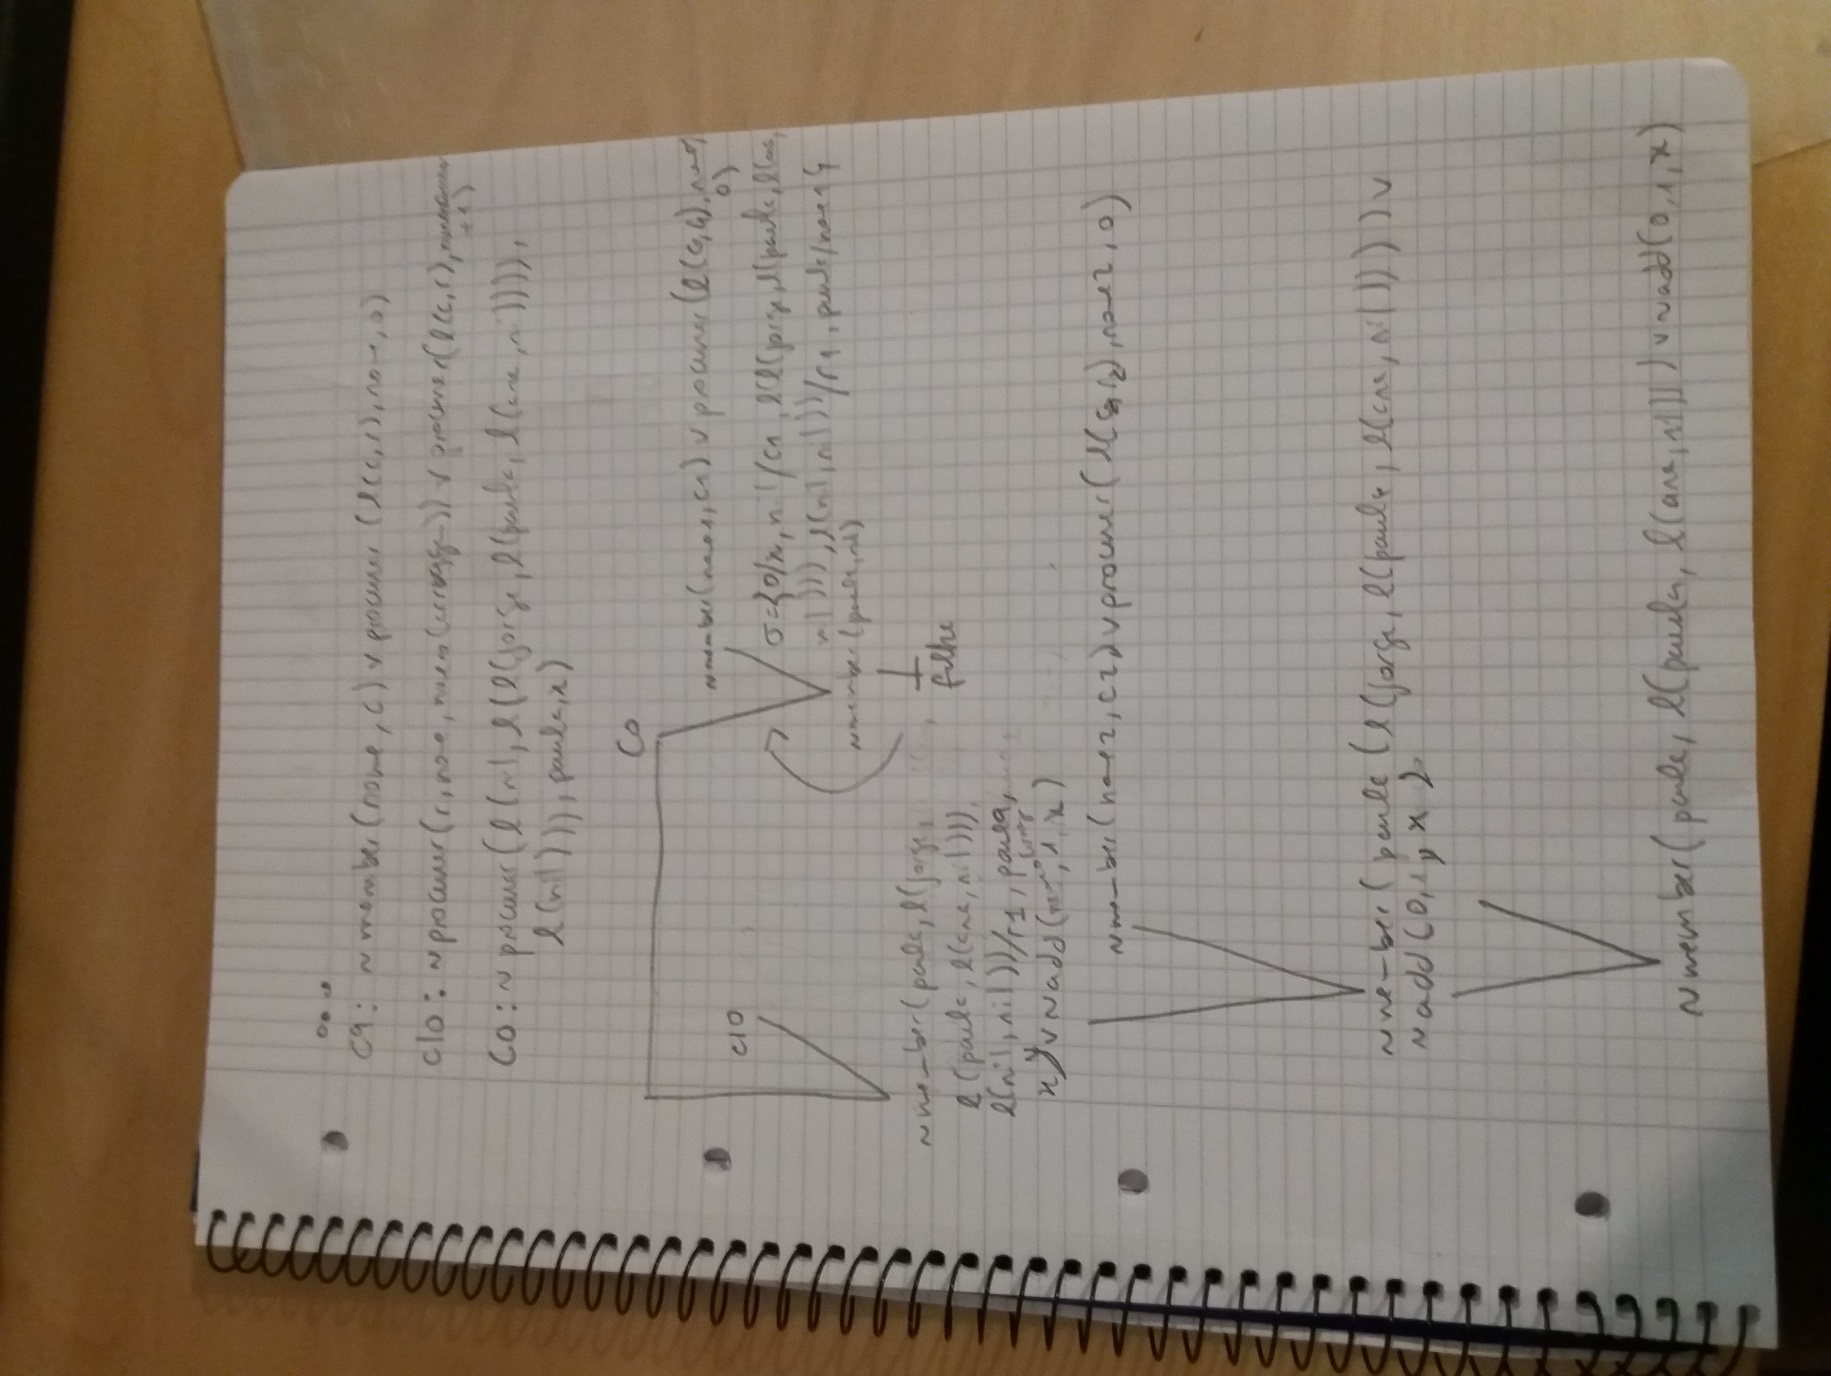 C9: ~member(nome, c) ∨ procurar(l(c, r), nome, 0)
C10: ~procurar(r, nome, ∨ procurar(l(c, r),
+1)
C0: ~procurar(l(nil, l(l(jorge, l(paula, l(ana, nil)))),
l(nil))), paula, x)
C0
~member(nome1, c1) ∨ procurar(l(c1, r1), nome1,
0)
C10
σ={0/x, nil/c1, l(l(jorge, l(paula, l(ana,
nil)))), l(nil, nil)))/r1, paula/nome1}
~member(paula, nil)
⊥
falha
~member(paula, l(jorge,
l(paula, l(ana, nil)))),
l(nil, nil))/r1, paula,
x) ∨ ~add( , 1, x)
~member(nome2, c2) ∨ procurar(l(c2, r2), nome2, 0)
~member(paula(l(jorge, l(paula, l(ana, nil)))) ∨
~add(0, 1, x)
~member(paula, l(paula, l(ana, nil))) ∨ ~add(0, 1, x)